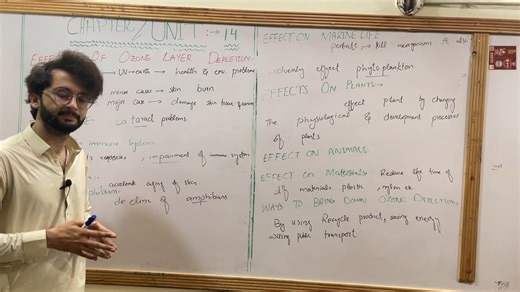 CHAPTER/UNIT :→ 14
EFFE Of OZONE LAYER DEPLETION:-
→ UV-earth → health & env. problems
minor cases → skin burn
major case → damage skin tissue &
Cataract problems
immune System
response, impairment of immune system
accelerate aging of skin
decline of amphibians
EFFECT ON MARINE LIFE
→ kill It also
cheanly effect phytoplankton
EFFECTS ON PLANTS:-
effect plant by changing
The physiological & development processes
of plants
EFFECT ON ANIMALS:
EFFECT ON Materials: Reduce the time of
diff materials plastic, nylon etc
WAYS TO BRING DOWN OZONE DEPLETION
By using Recycle product, saving energy
using public transport